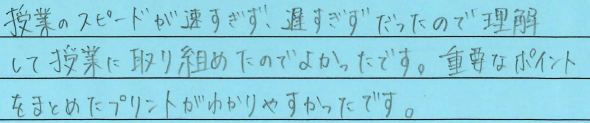 授業のスピードが速すぎず、遅すぎずだったので理解
して授業に取り組めたのでよかったです。重要なポイント
をまとめたプリントがわかりやすかったです。